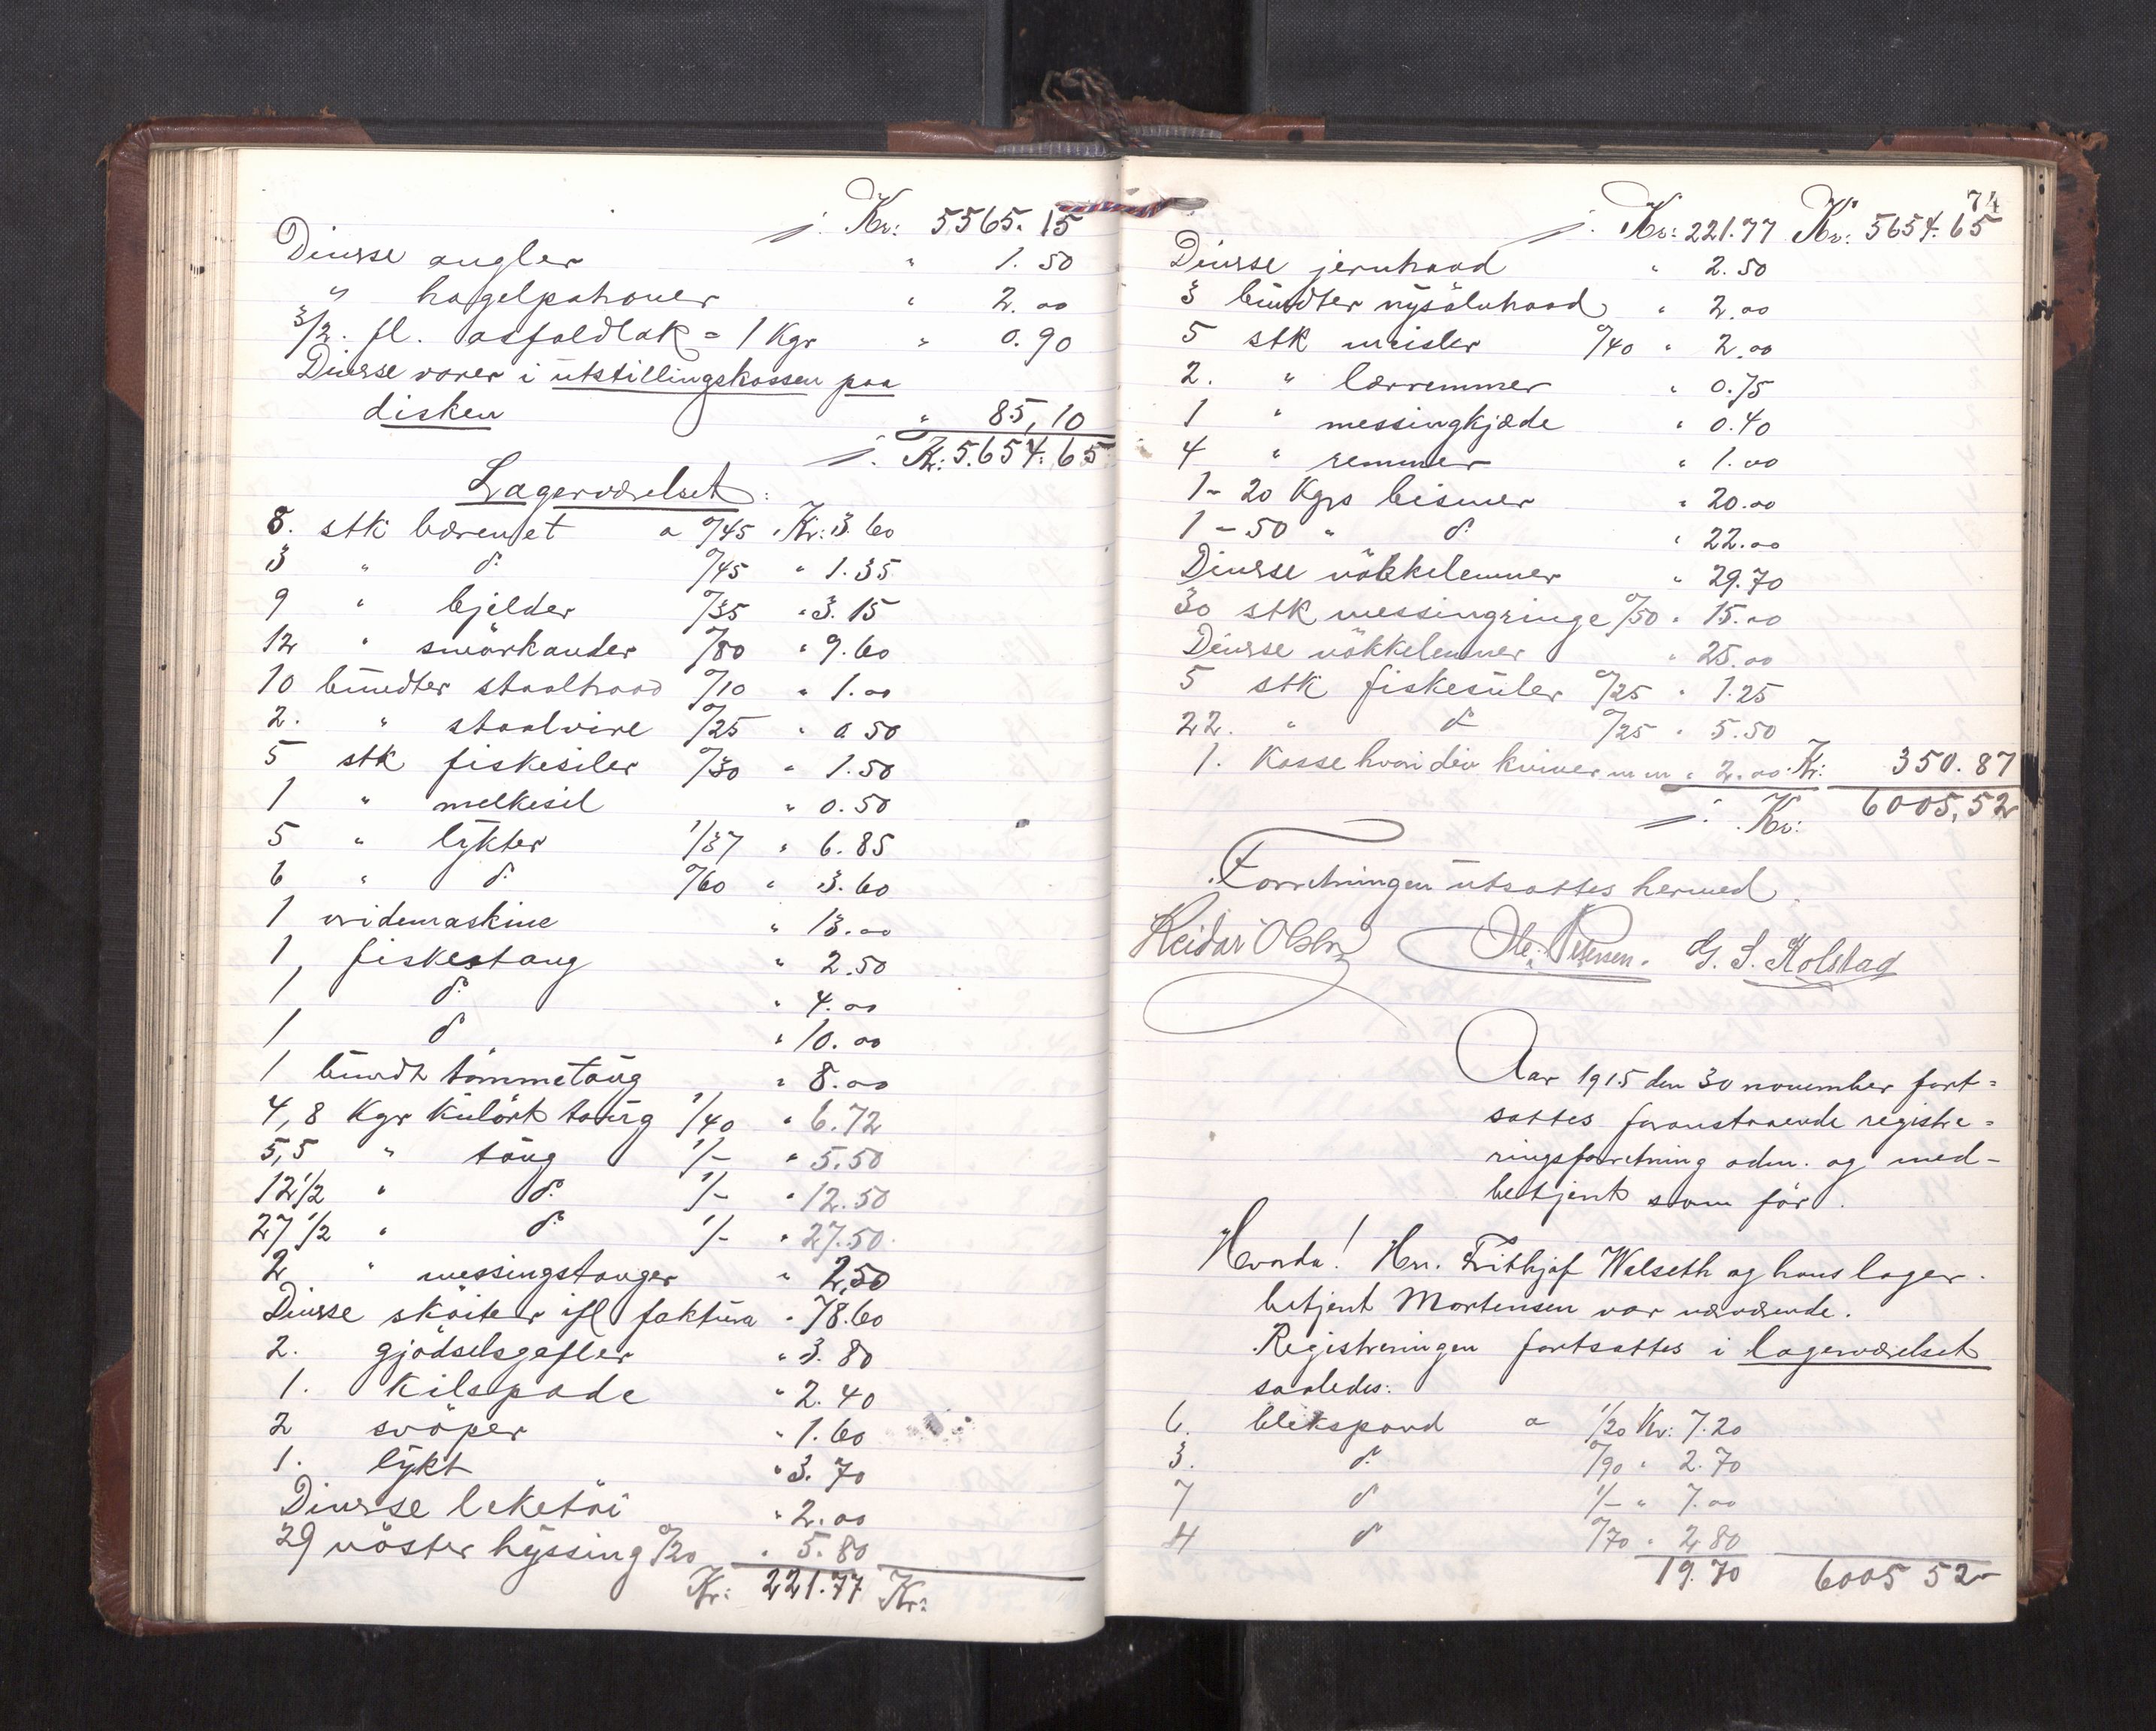 ./. Kr: 5565.15
Diverse angler " 1.50
" hagelpatroner " 2.00
3/2. fl. asfaldlak = 1 Kgr " 0.90
Diverse varer i utstillingskassen paa
disken " 85,10
./. Kr: 5.654.65
Lagerværelset:
8. stk bærenet a 0/45 " Kr: 3.60
3 " do 0/45 " 1.35
9 " bjelder 0/35 " 3.15
12 " smörkander 0/80 " 9.60
10 bundter staaltraad 0/10 " 1.00
2. " staalvire 0/25 " 0 50
5 stk fiskesiler 0/30 " 1.50
1 " melkesil " 0.50
5 " lykter 1/37 " 6.85
6 " do 0/60 " 3.60
1 vridemaskine " 13.00
1, fiskestang " 2.50
1 do " 4.00
1 do " 10.00
1 bundt tömmetaug " 8.00
4,8 Kgr kulört taug 1/40 " 6.72
5,5 " taug 1/- " 5.50
12 1/2 " do 1/- " 12.50
27 1/2 " do 1/- " 27.50
2 " messingstanger " 2,50
Diverse sköiter ifl faktura " 78.60
2. gjödselsgafler " 3.80
1. Kilspade " 2.40
2 svöper " 1.60
1. lykt " 3.70
Diverse leketöi " 2.00
29 nöster hyssing 0/20 " 5.80
Kr: 221.77 Kr:
74
./. Kr: 221.77 Kr: 5654.65
Diverse jerntraad " 2.50
3 bundter nysölvtraad " 2.00
5 stk meisler 0/40 " 2.00
2. " lærremmer " 0.75
1 " messingkjæde " 0.40
4 " remmer " 1.00
1- 20 Kgrs bismer " 20.00
1 - 50 " do " 22.00
Diverse nökkelemner " 29.70
30 stk messingringe 0/50 " 15.00
Diverse nökkelemner " 25.00
5 stk fiskesuler 0/25 " 1.25
22. " do 0/25 " 5.50
1. Kasse hvori div kniver m m " 2.00 Kr: 350.87
./. Kr: 6005,52
Forretningen utsattes hermed.
Reidar Olsen Ole Petersen. G. S. Kolstad
Aar 1915 den 30 november fort=
sattes foranstaaende registre=
ringsforretning adm. og med-
betjent som för.
Hvorda! Hrr. Frithjof Walseth og hans lager-
betjent Mortensen var nærværende.
Registreringen fortsattes i lagerværelset
saaledes:
6. blekspand a 1/20 Kr: 7.20
3. do 0/90 " 2.70
7 do 1/- " 7.00
4 do 0/70 " 2,80
19.70 6005 52